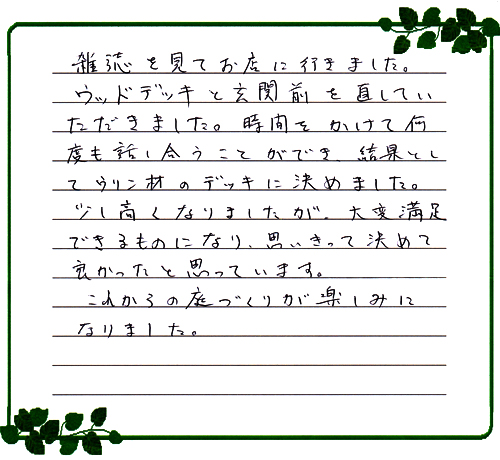 雑誌を見てお店に行きました。
ウッドデッキと玄関前を直してい
ただきました。時間をかけて何
度も話し合うことができ、結果とし
てウリン材のデッキに決めました。
少し高くなりましたが、大変満足
できるものになり、思いきって決めて
良かったと思っています。
これからの庭づくりが楽しみに
なりました。